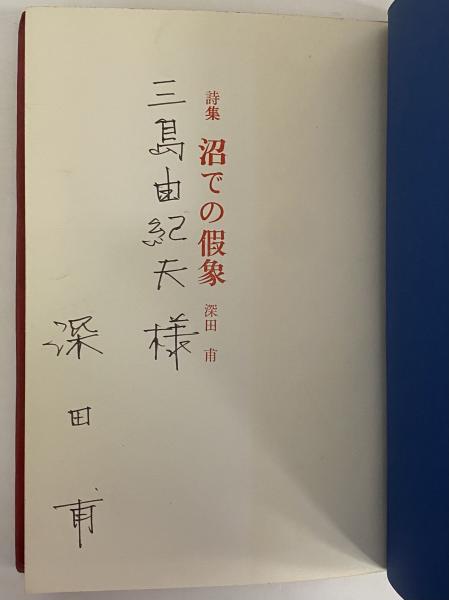 詩集 沼での假象 深田 甫
三島由紀夫様
深田甫